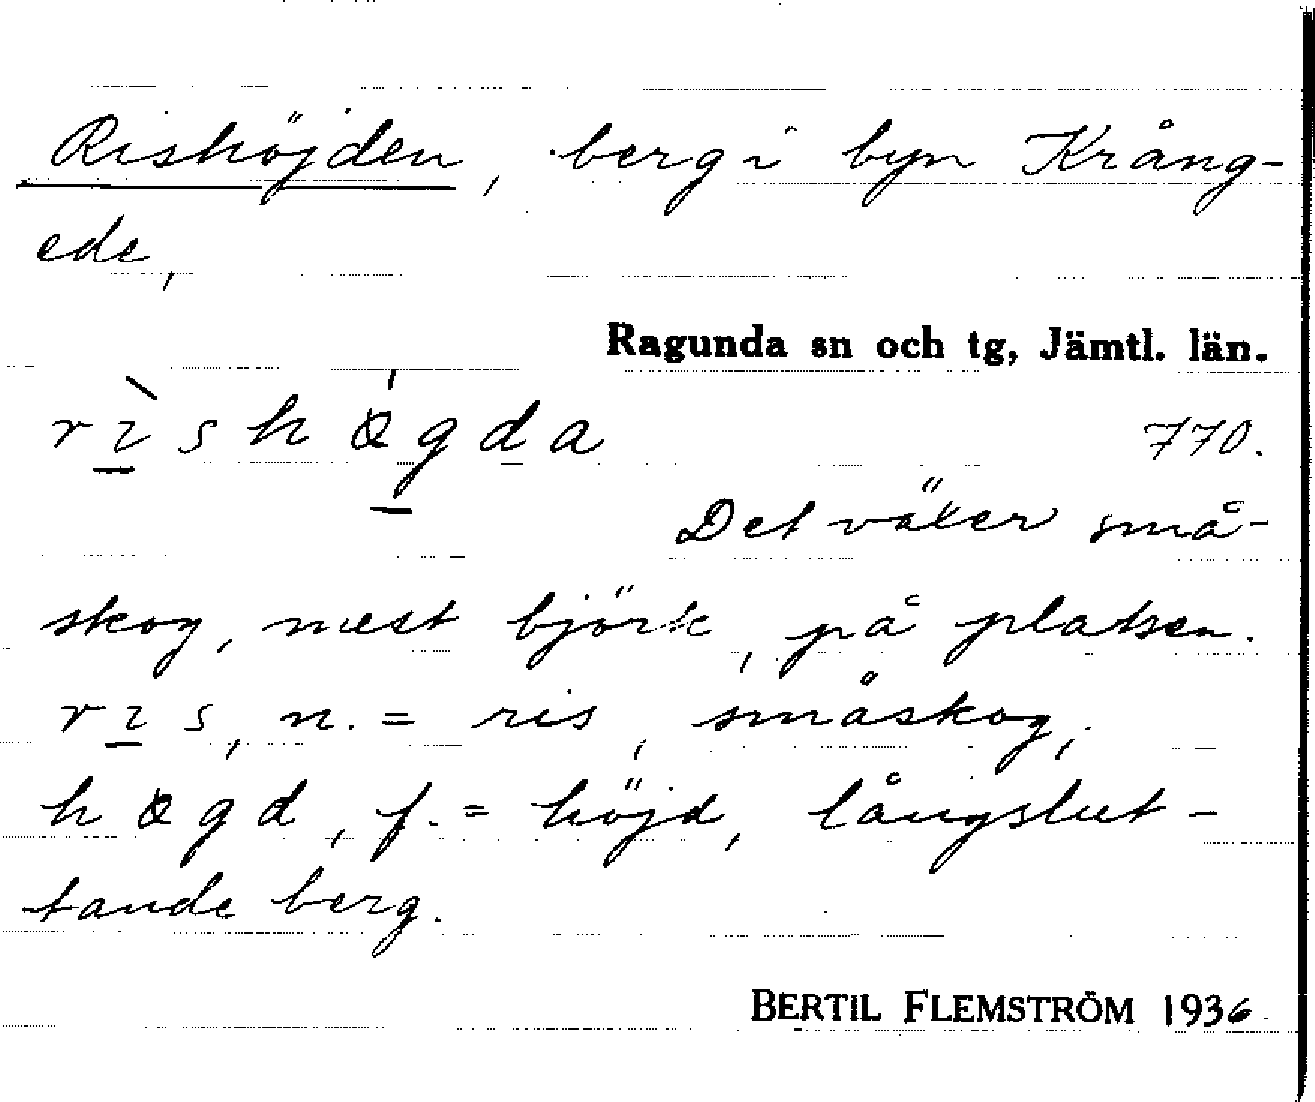 Rishöjden, berg i byn Krång-
ede,
Ragunda sn och tg, Jämtl. län.
rɩ̀shɵ́gda 770.
Det växer små-
skog, mest björk, på platsen.
rɩs, n. = ris, småskog,
hɵgd, f. = höjd, långslut-
tande berg.
BERTIL FLEMSTRÖM 1936